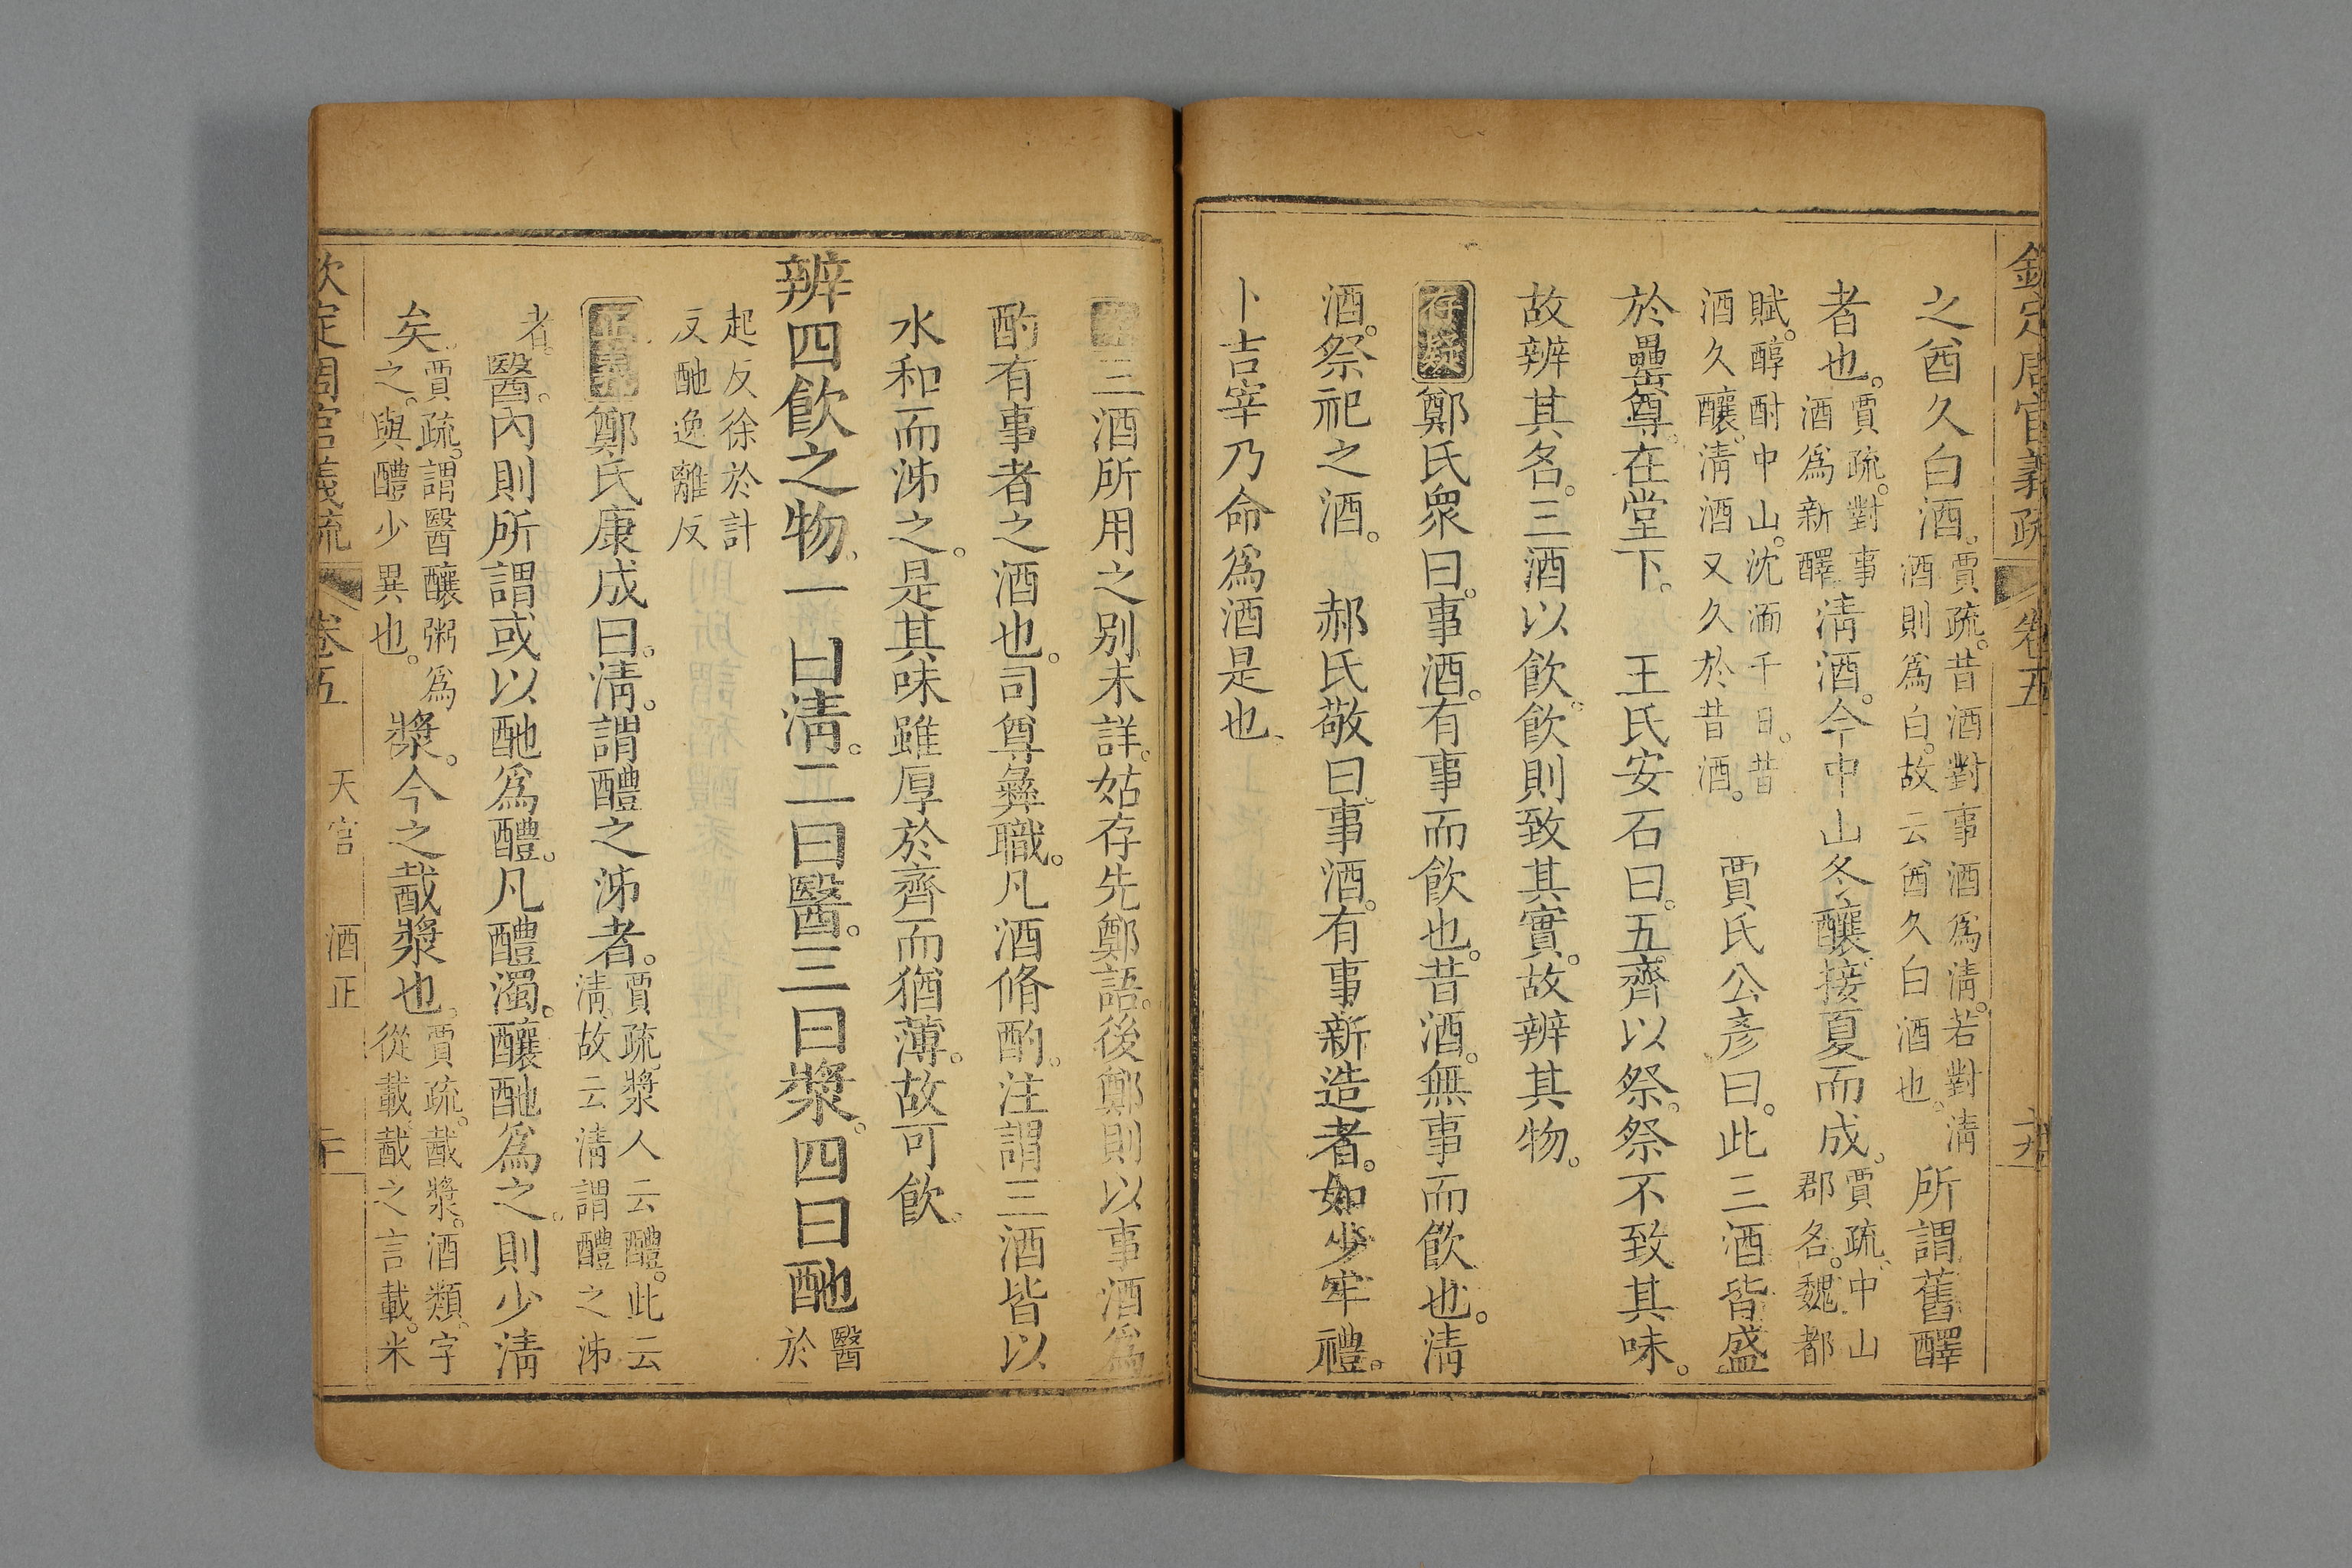 欽定周官義疏 卷五
之酋久白酒。賈疏。昔酒對事酒爲淸。若對淸酒則爲白。故云酋久白酒也。所謂舊醳
者也。賈疏。對事酒爲新醳淸酒。今中山冬釀。接夏而成。賈疏、中山郡名。魏都
賦。醇酎中山。沈湎千日。昔酒久釀。淸酒又久於昔酒。 賈氏公彥曰。此三酒皆盛
於罍尊。在堂下。 王氏安石曰。五齊以祭。祭不致其味。
故辨其名。三酒以飮。飮則致其實。故辨其物。
存疑鄭氏衆曰。事酒。有事而飮也。昔酒。無事而飮也。淸
酒。祭祀之酒。 郝氏敬曰。事酒。有事新造者。如少牢禮。
卜吉宰乃命爲酒是也、
三酒所用之别未詳。姑存先鄭語。後鄭則以事酒爲
酌有事者之酒也。司尊彝職。凡酒脩酌。注謂三酒皆以
水和而泲之。是其味雖厚於齊而猶薄。故可飮。
辨四飮之物、一曰淸。二曰醫。三曰漿。四曰酏醫於
起反徐於計反酏逸離反
正義鄭氏康成曰。淸。謂醴之泲者。賈疏。漿人云醴。此云淸。故云淸謂醴之泲
者。醫。內則所謂或以酏爲醴。凡醴濁。釀酏爲之。則少淸
矣。賈疏。謂醫釀粥爲之。與醴少異也。漿。今之酨漿也。賈疏。酨漿。酒類。字從載。酨之言載。米
欽定周官義疏 卷五 天官 酒正